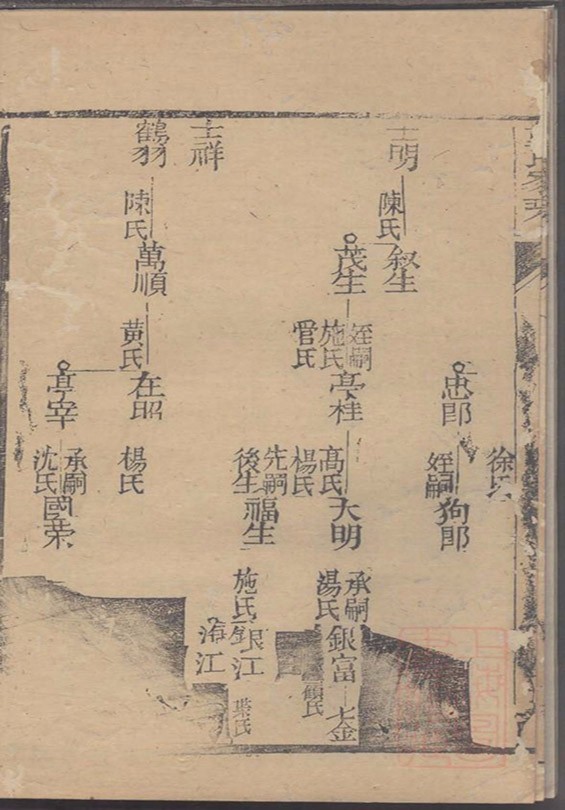 徐氏
忠郎
姪嗣
狗郎
士明
陳氏
叙生
茂生
姪嗣
施氏
管氏
亭桂
高氏
楊氏
大明
承嗣
湯氏
銀富
顧氏
七金
士祥
先嗣
後生
福生
施氏
銀江
葉氏
海江
鶴羽
陳氏
萬順
黃氏
在昭
楊氏
亭宰
承嗣
沈氏
國荣